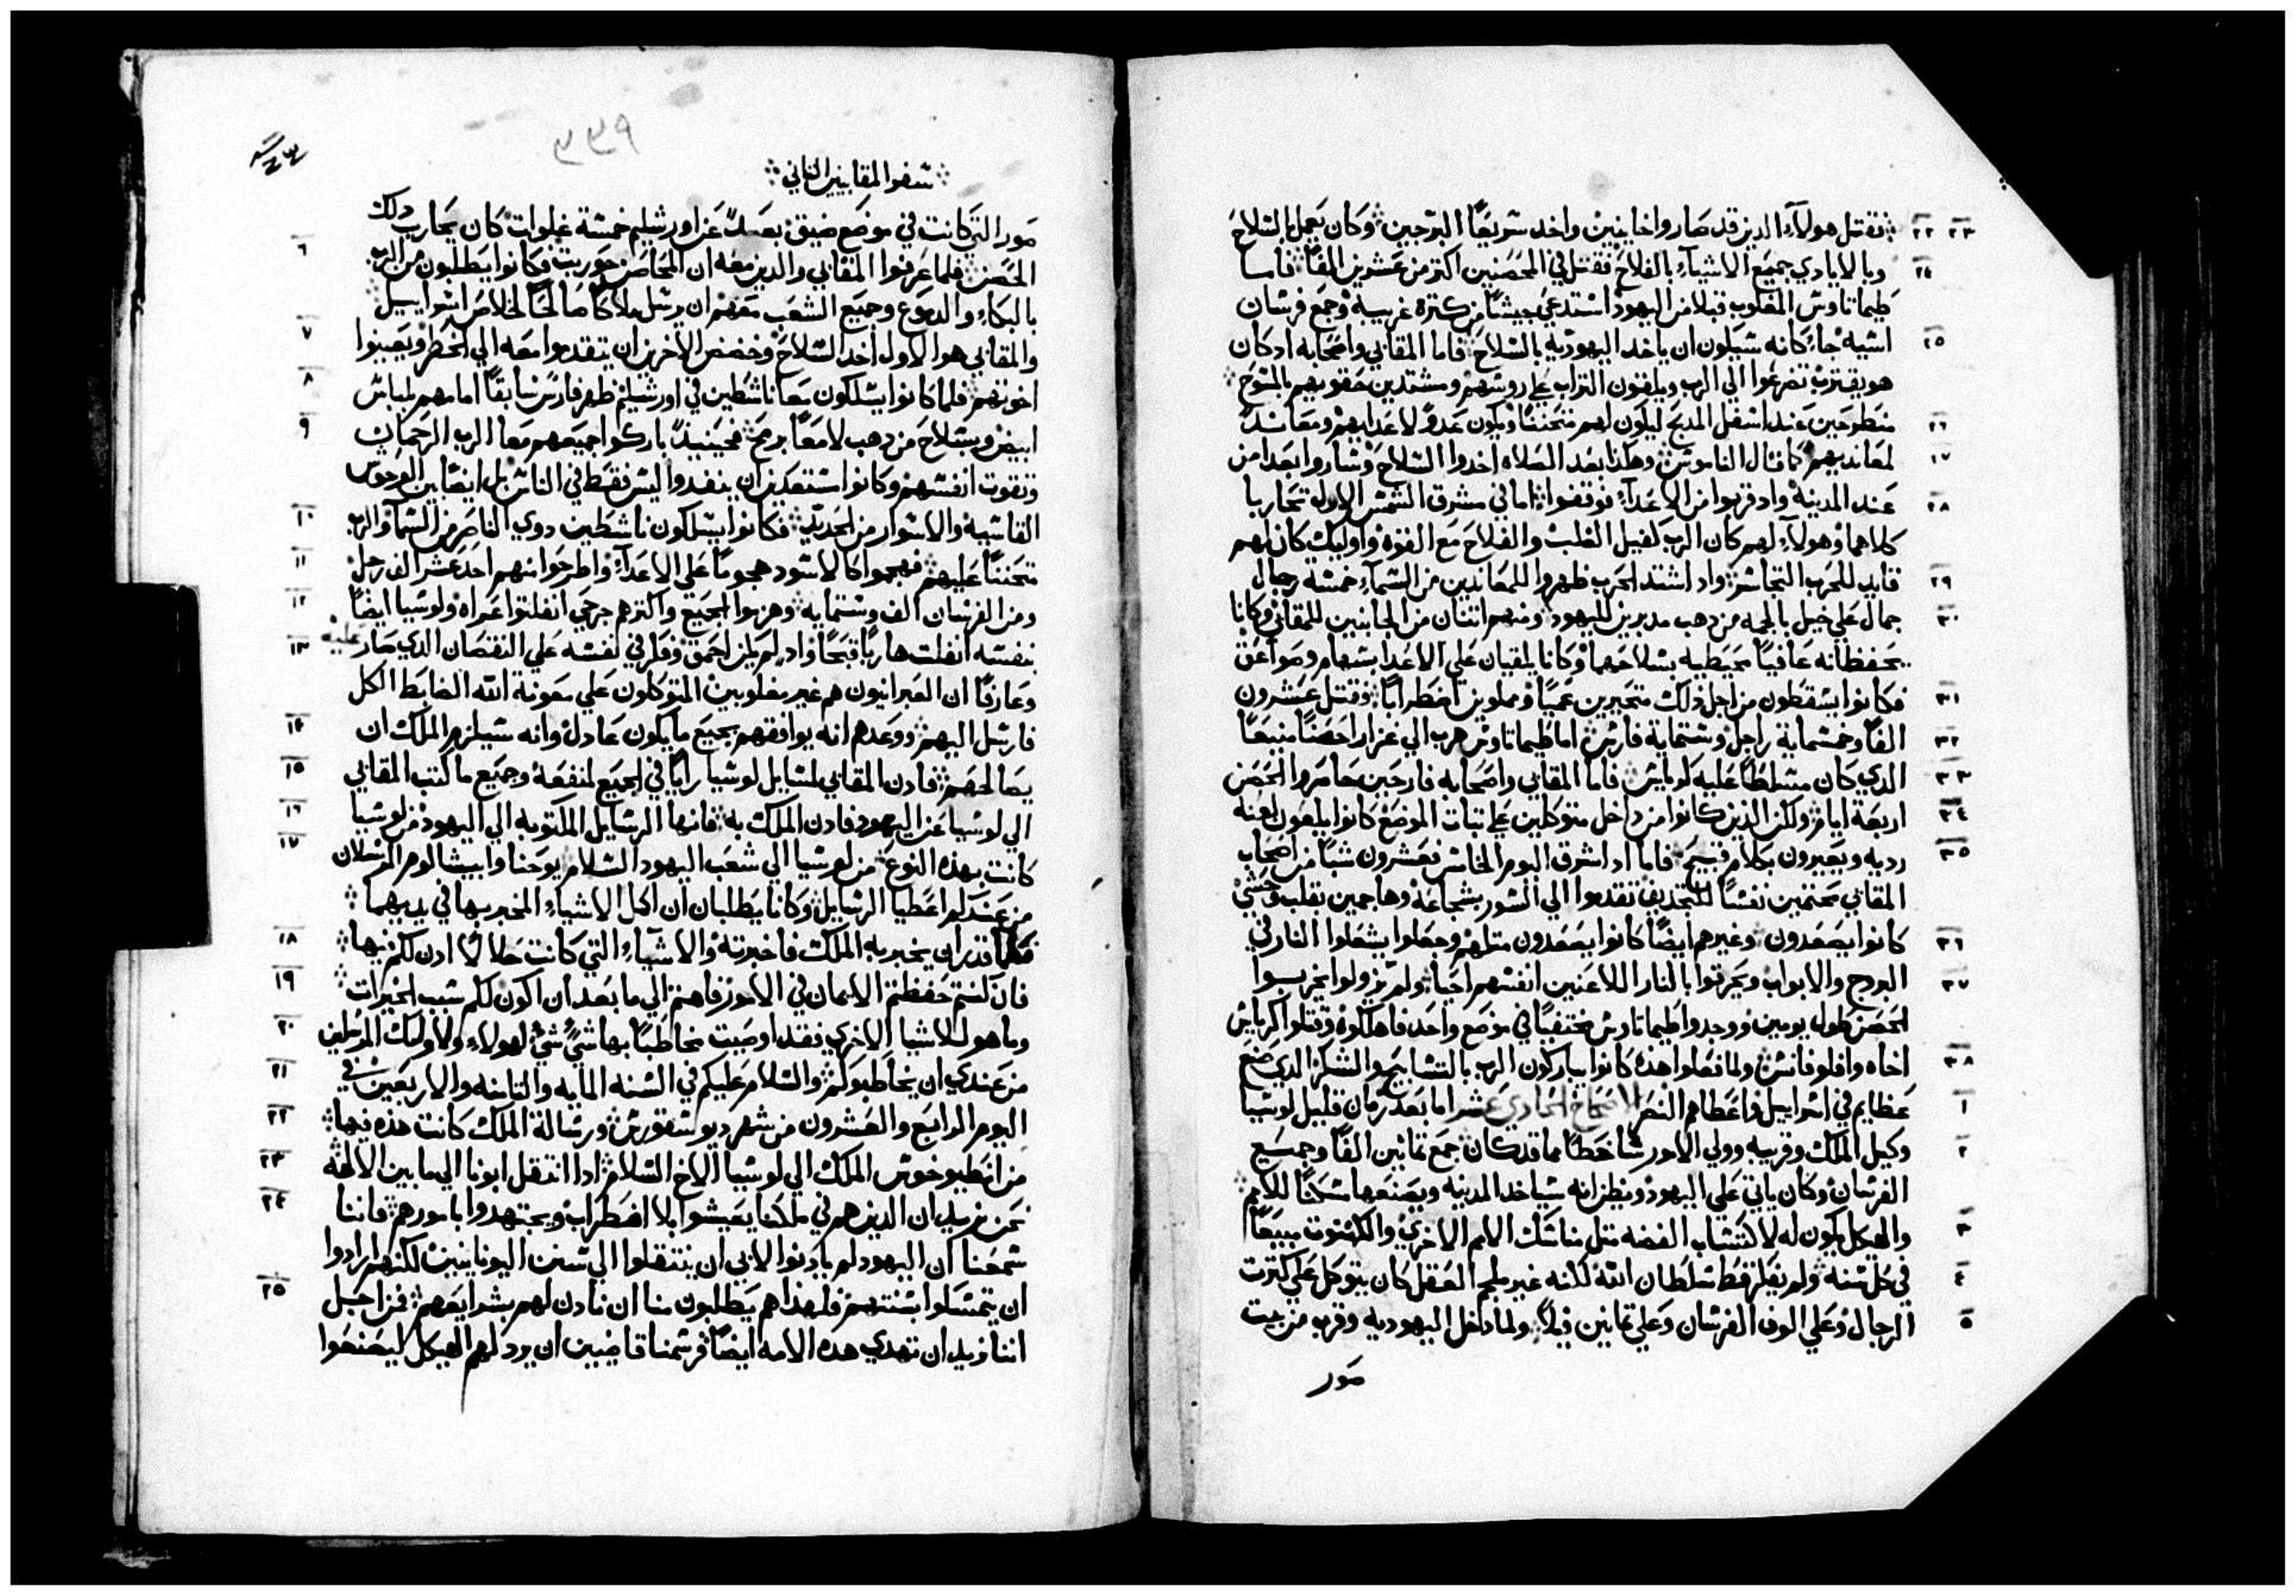 ٢٢ ٢٣ فقتل هولاء الدين قد صاروا خاينين واخد سريعًا البرجين وكان يعمل بالسلاح
٢٤ وبالايادي جميع الاشياء بالفلاح فقتل في الحصنين اكتر من عشرين الفًا فاما
طيماتاوس المغلوب قبلا من اليهود استدعى جيشًا من كترة غريبة وجمع فرسان
٢٥ اسيه جاء كانه سيكون ان ياخد اليهوديه بالسلاح فاما المقابي واصحابه ادكان
هو يقترب تضرعوا الي الرب ويلقون التراب على روسهم ومشتدين حقويهم بالمسوح
٢٦ منطرحين عند اسفل المدبح ليكون لهم متحننًا ويكون عدوًا لاعدايهم ومعاندًا
٢٧ لمعانديهم كما قال الناموس وهكذا بعد الصلاه اخدوا السلاح وساروا بعدا من
٢٨ عند المدينه واد قربوا من الاعداء توقفوا اما في مشرق الشمس الاوله تحاربا
كلاهما وهولاء لهم كان الرب كفيل الغلب والفلاح مع القوه واوليك كان لهم
٢٩ قايد للحرب التجاسر واد اشتد الحرب ظهروا للمعاندين من السماء خمسة رجال
٣٠ جمال على خيل بالجمه من دهب مدبرين لليهود ومنهم اتنان من الجانبين للمقابي وكانا
يحفظانه عافيًا محيطيه بسلاحهما وكانا يلقيان على الاعدا سهام وصواعق
٣١ فكانوا يسقطون من اجل ذلك متحيرين عميًا ومملوين اضطرابًا فقتل عشرون
٣٢ الفًا وخمسماية راجل وستماية فارس اما طيماتاوس هرب الي غزارا حصنًا منيعًا
٣٣ الدي كان مسلطًا عليه كوباس فاما المقابي واصحابه فارحين حاصروا الحصن
٣٤ اربعة ايام ولكن الذين كانوا من داخل متوكلين على تبات الموضع كانوا يلعون لعنه
٣٥ رديه ويعيرون بكلام قبيح فاما اد اشرق اليوم الخامس فعشرون شبًا من اصحاب
المقابي محتمين نفسًا للتجديف تقدموا الي السور بشجاعة وهاجمين بقلب وحشي
٣٦ كانوا يصعدون وغيرهم ايضًا كانوا يصعدون متلهم وجعلوا يشعلوا النار في
٣٧ البروج والابواب ويحرقوا بالنار اللاعنين انفسهم احياء ولم يزولوا يخربوا
الحصن طول يومين ووجدوا طيماتاوس مختفيًا في موضع واحد فاهلكوه وقتلوا كرياس
٣٨ اخاه وافلوفانس ولما فعلوا هذه كانوا يباركون الرب بالتسابيح والشكر الدي صنع
١ عظايم في اسراييل واعطاهم النصر الاصحاح الحادي عشر اما بعد زمان قليل لوسيا
٢ وكيل الملك وقريبه وولي الامور ساخطًا مما قد كان جمع تمانين الفًا وجميع
الفرسان وكان ياتي على اليهود ويظن انه سياخد المدينه ويصنعها مسكنًا للامم
٣ والهيكل يكون له لاكتساب الفضه متل مناسك الامم الاخرى والكهنوت مبيعًا
٤ في كل سنه ولم يفكر قط سلطان الله لكنه غير ملجم العقل كان يتوكل على كترت
٥ الرجال وعلي الوف الفرسان وعلي تمانين فيلًا ولما دخل اليهوديه وقرب من بيت
صور
٣٣٩
سفر المقابيين التاني
صور التي كانت في موضع ضيق بعيدًا عن اورشليم خمسة غلوات كان يحارب دلك
٦ الحصن فلما عرفوا المقابي والدين معه ان المحاصر حوربت وكانوا يطلبون من الرب
بالبكاء والدموع وجميع الشعب معهم ان يرسل ملاكًا صالحًا لخلاص اسراييل
٧ والمقابي هو الاول اخد السلاح وحضض الاخرين ان يتقدموا معه الي الخطر ويعينوا
٨ اخوتهم فلما كانوا يسلكون معا ناشطين في اورشليم ظهر فارس سابقًا امامهم بلباس
٩ ابيض وبسلاح من دهب لامعًا برمح فحينيد باركوا جميعهم معا الرب الرحمان
وتقوت انفسهم وكانوا مستعدين ان ينفدوا ليس فقط في الناس بل ايضًا بين الوحوش
١٠ القاسيه والاسوار من الحديد فكانوا يسلكون ناشطين دوي الناصر من السما والرب
١١ متحننًا عليهم فهجموا كالاسود هجومًا علي الاعداء واطرحوا منهم احد عشر الف رجل
١٢ ومن الفرسان الف وستمايه وهزموا الجميع واكترهم جرحى انفلتوا عراه ولوسيا ايضًا
١٣ بنفسه انفلت هاربًا قبحًا واد لم يكن احمق وفكر في نفسه علي النقصان الدي صار عليه
وعارفًا ان العبرانيون هم غير مغلوبين المتوكلون علي معونة الله الضابط الكل
١٤ فارسل اليهم ووعدهم انه يوافقهم بجميع ما يكون عادل وانه سيلزم الملك ان
١٥ يصالحهم فادن المقابي لمسايل لوسيا رايًا في الجميع لمنفعة وجميع ما كتب المقابي
١٦ الي لوسيا عن اليهود فادن الملك به فانها الرسايل المكتوبه الي اليهود من لوسيا
١٧ كانت بهذه النوع من لوسيا الي شعب اليهود السلام يوحنا وابيشالوم المرسلان
من عندكم اعطيا الرسايل وكانا يطلبان ان اكمل الاشياء المخبر بها في يديهما
١٨ فكلما قدر ان يخبر به الملك فاخبرته والاشياء التي كانت حلالًا ادن لكم فيها
١٩ فان كنتم حفظتم الايمان في الامور فاهتم الي ما بعد ان اكون لكم سبب الخيرات
٢٠ وما هو للاشيا الاخري فقد اوصيت مخاطبًا بها شيءً شيءً لهولاء ولاوليك المرسلين
٢١ من عندي ان يخاطبوكم والسلام عليكم في السنه المايه والتامنه والاربعين في
٢٢ اليوم الرابع والعشرون من شهر ديوسقورس ورسالة الملك كانت هذه فيها
٢٣ من انطيوخوس الملك الي لوسيا الاخ السلام ادا انتقل ابونا الي ما بين الالهه
٢٤ نحن نريد ان الدين هم في ملكنا يعيشوا بلا اضطراب ويجتهدوا بامورهم فاننا
سمعنا ان اليهود لم يادنوا لابي ان ينتقلوا الي سنن اليونانيين لكنهم ارادوا
٢٥ ان يتمسكوا بسنتهم فلهذا هم يطلبون منا ان نادن لهم بشرايعهم فمن اجل
اننا نريد ان تهدي هده الامه ايضًا فرسمنا قاضيين ان يرد لهم الهيكل ليصنعوا